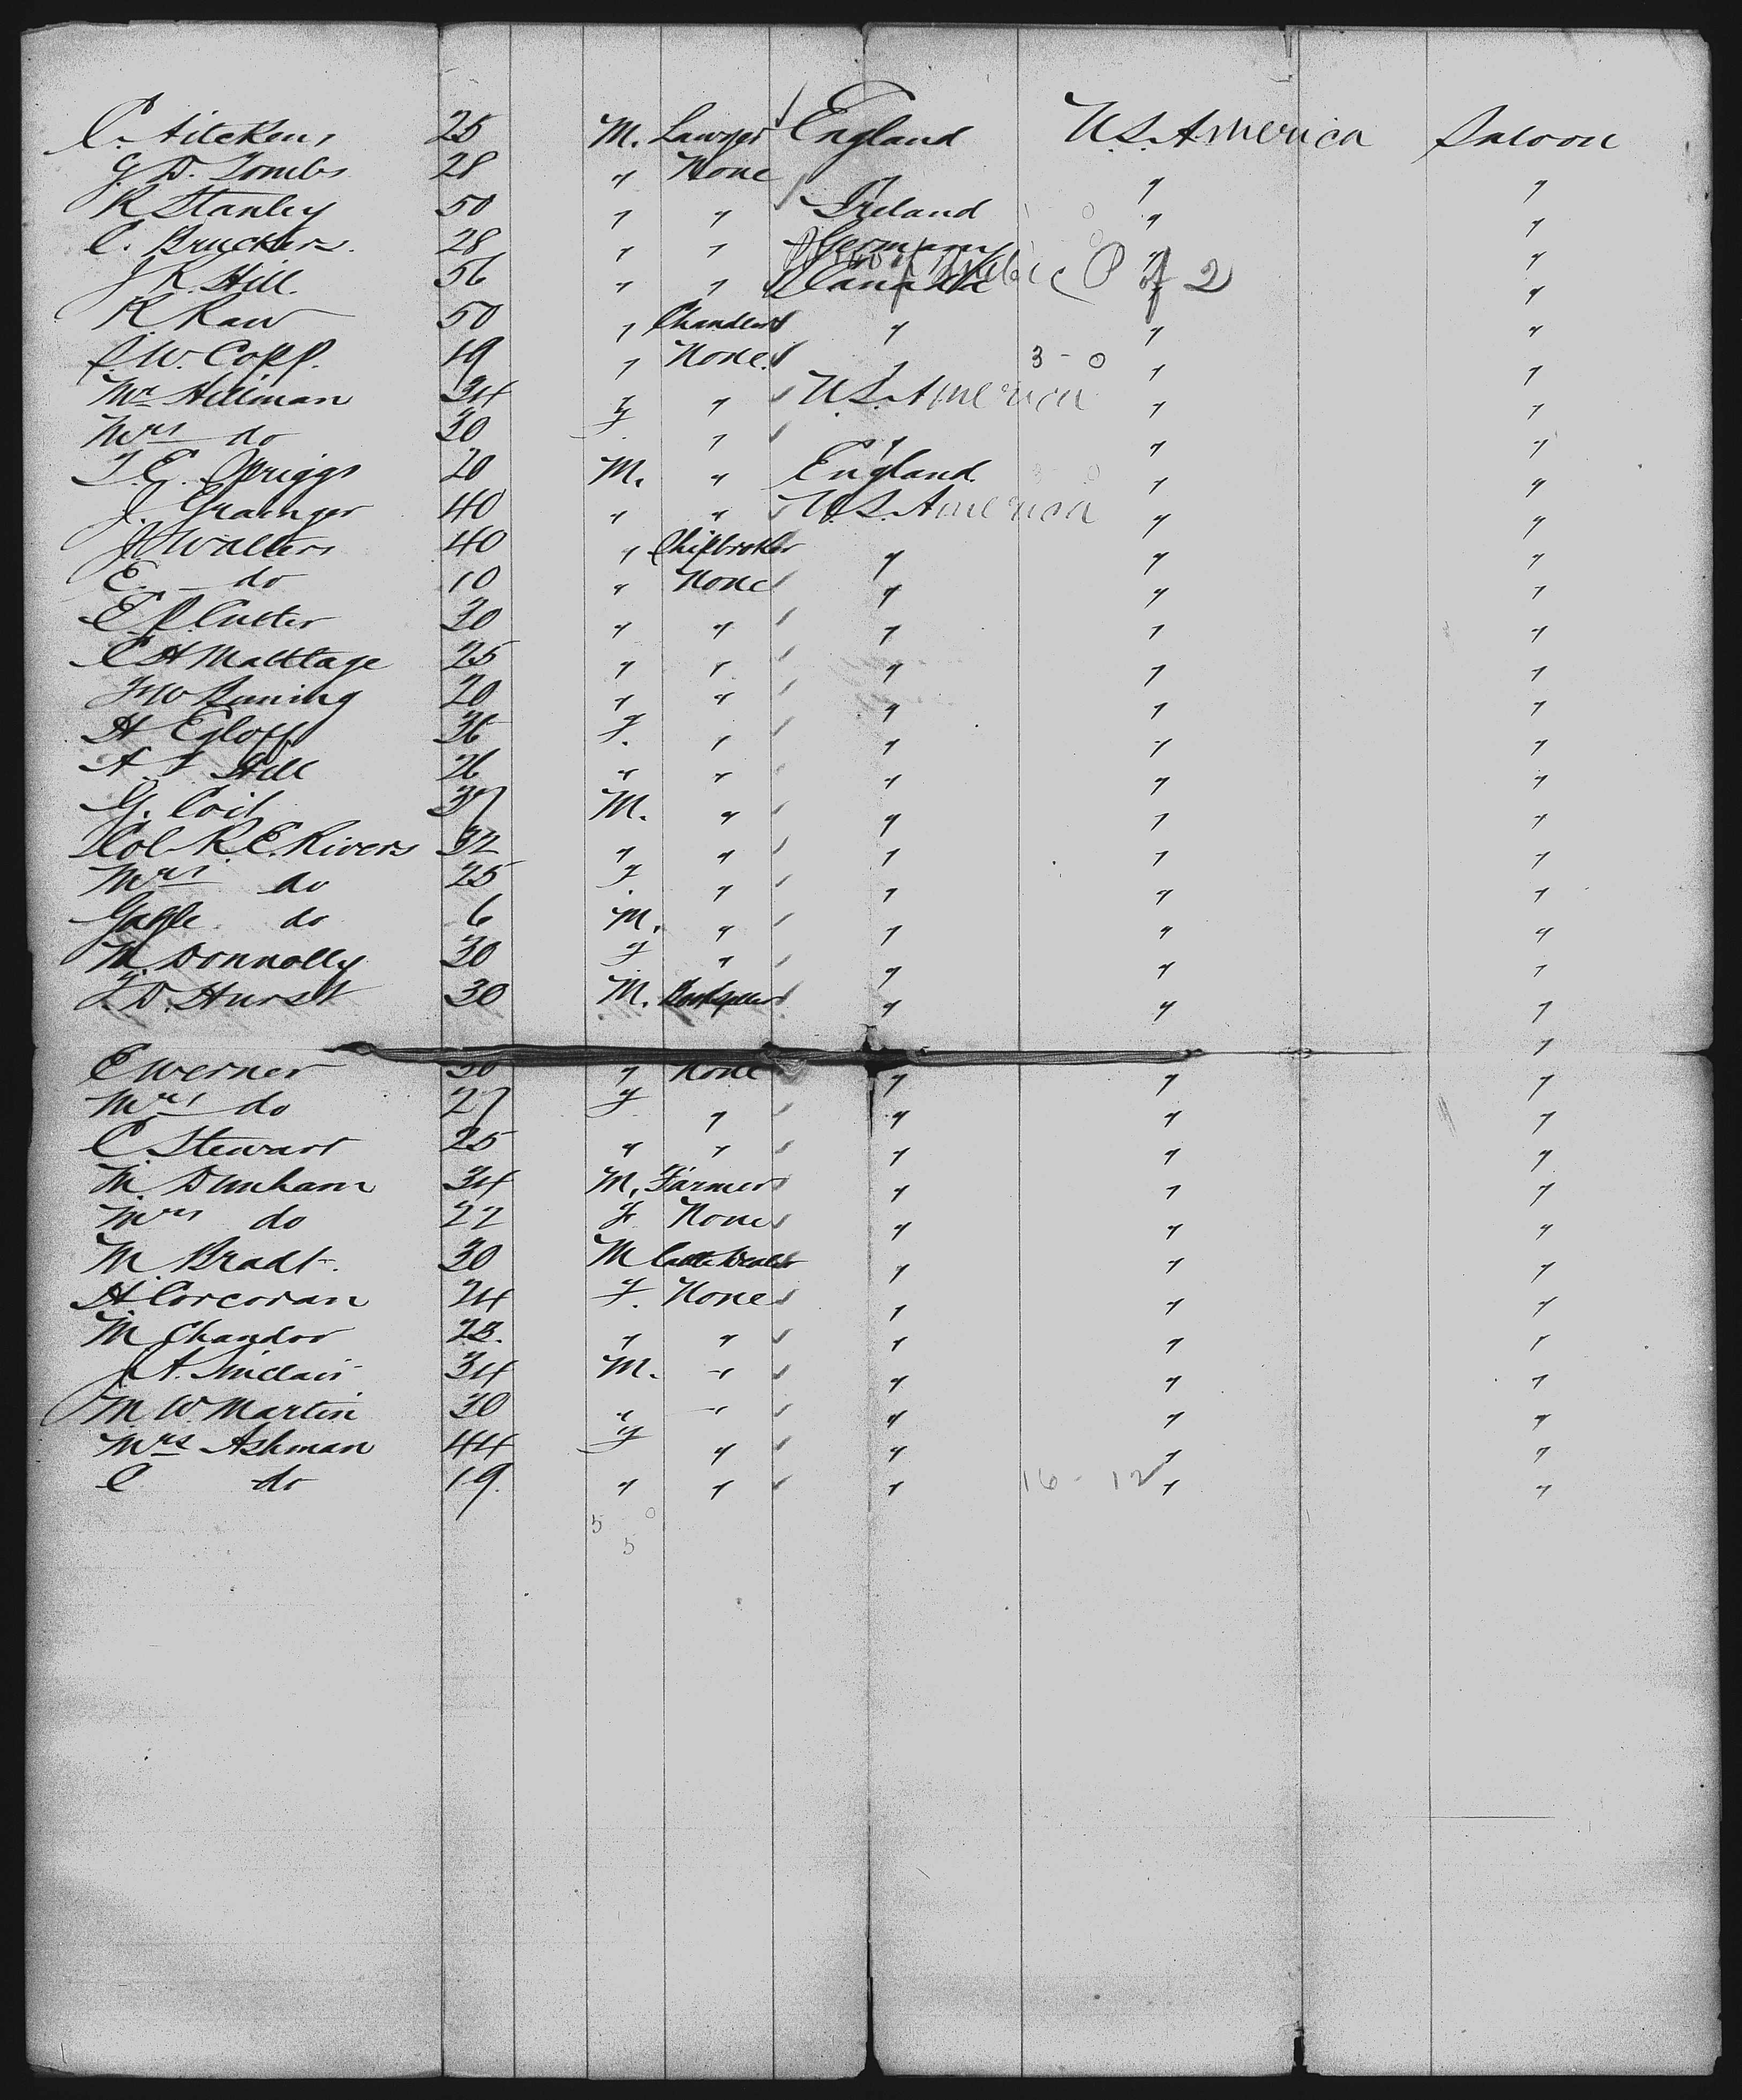 C. Aitckens 25 M. Lawyer England U.S. America Saloon
G. D. Tombs 28 " None " " "
R Stanley 50 " " Ireland " "
C. Bruckers. 28 " " Germany " "
J K. Hill. 56 " " Canada " " 2
R. Raw 50 " Chandler " " "
S. W. Copp. 19 " None. " 3-0 " "
Mr Hillman 34 " " U.S. America " "
Mrs do 30 F " " " "
T. E. Spriggs 20 M. " England " "
J. Grainger 40 " " U.S. America " "
J. Walters 40 " Shipbroker " " "
E. do 10 " None " " "
E. P. Cutter 30 " " " " "
C H Malttage 25 " " " " "
20 " " " " "
H Egloff 36 F. " " " "
A. S Hill 26 " " " " "
G. Coit 37 M. " " " "
Col R. E. Rivers 32 " " " " "
Mrs do 25 F " " " "
do 6 M. " " " "
M. Donnolly 30 F " " " "
F. D. Hurst 30 M. Bookseller " " "
E Werner 30 " None " " "
Mrs do 27 F " " " "
C. Stewart 25 " " " " "
M. Dunham 34 M. Farmer " " "
Mrs do 22 F None " " "
M. Bradt. 30 M Cattle Dealer " " "
H Corcoran 24 F. None " " "
M Chandor 23. " " " " "
J A. Sinclair 34 M. " " " "
M. W. Martin 30 " " " " "
Mrs Ashman 44 F " " " "
C do 19. " " " 16-12 " "
5 0
5